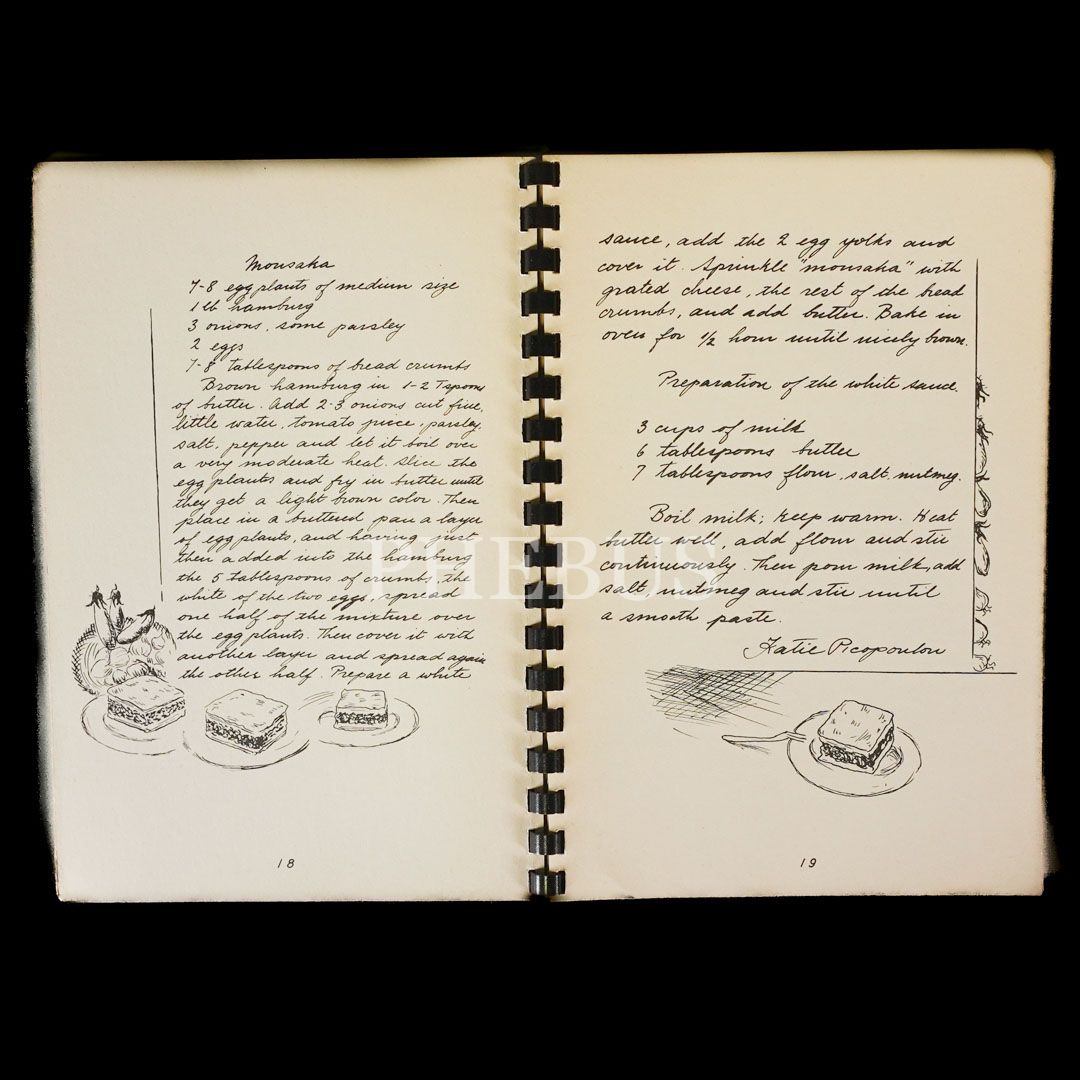 Mousaka
7-8 eggplants of medium size
1 lb hamburg
3 onions, some parsley
2 eggs
7-8 tablespoons of bread crumbs
Brown hamburg in 1-2 Tspoons
of butter. Add 2-3 onions cut fine,
little water, tomato juice, parsley,
salt, pepper and let it boil over
a very moderate heat. Slice the
egg plants and fry in butter until
they get a light brown color. Then
place in a buttered pan a layer
of egg plants, and having just
then added into the hamburg
the 5 tablespoons of crumbs, the
white of the two eggs, spread
one half of the mixture over
the egg plants. Then cover it with
another layer and spread again
the other half. Prepare a white
18
sauce, add the 2 egg yolks and
cover it. Sprinkle "mousaka" with
grated cheese, the rest of the bread
crumbs, and add butter. Bake in
oven for 1/2 hour until nicely brown.
Preparation of the white sauce.
3 cups of milk
6 tablespoons butter
7 tablespoons flour, salt, nutmeg.
Boil milk; keep warm. Heat
butter well, add flour and stir
continuously. Then pour milk, add
salt, nutmeg and stir until
a smooth paste.
Katie Picopoulou
19
PHEBUS